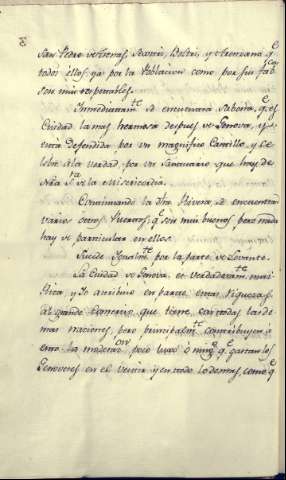 8
San Pedro de Arenas, Sestri, Voltri, y Arenzana q.e
todos ellos ya por la Poblacion como por sus fabcas
son mui respetables.
Inmediatam.te se encuentra Sabona, q.e es
Ciudad la mas hermosa despues de Genova, y
está defendida por un magnifico Castillo, y ce
lebre á la verdad, por un Santuario que hay de
Ntra S.ra de la Misericordia.
Continuando la dha Rivera se encuentran
varios otros Puertos, q.e son mui buenos, pero nada
hay de particular en ellos.
Sucede Igualm.te por la parte de Levante.
La Ciudad de Genova, es verdaderam.te mag-
nifica, y Yo atribuio en parte, estas riquezas,
al grande Comercio que tiene, con todas las de
mas naciones, pero principalm.te contribuyen á
esto la moderac.on poco luxo ó ning.o q.e gastan los
Genoveses en el vestir y en todo lo demas, como q.e